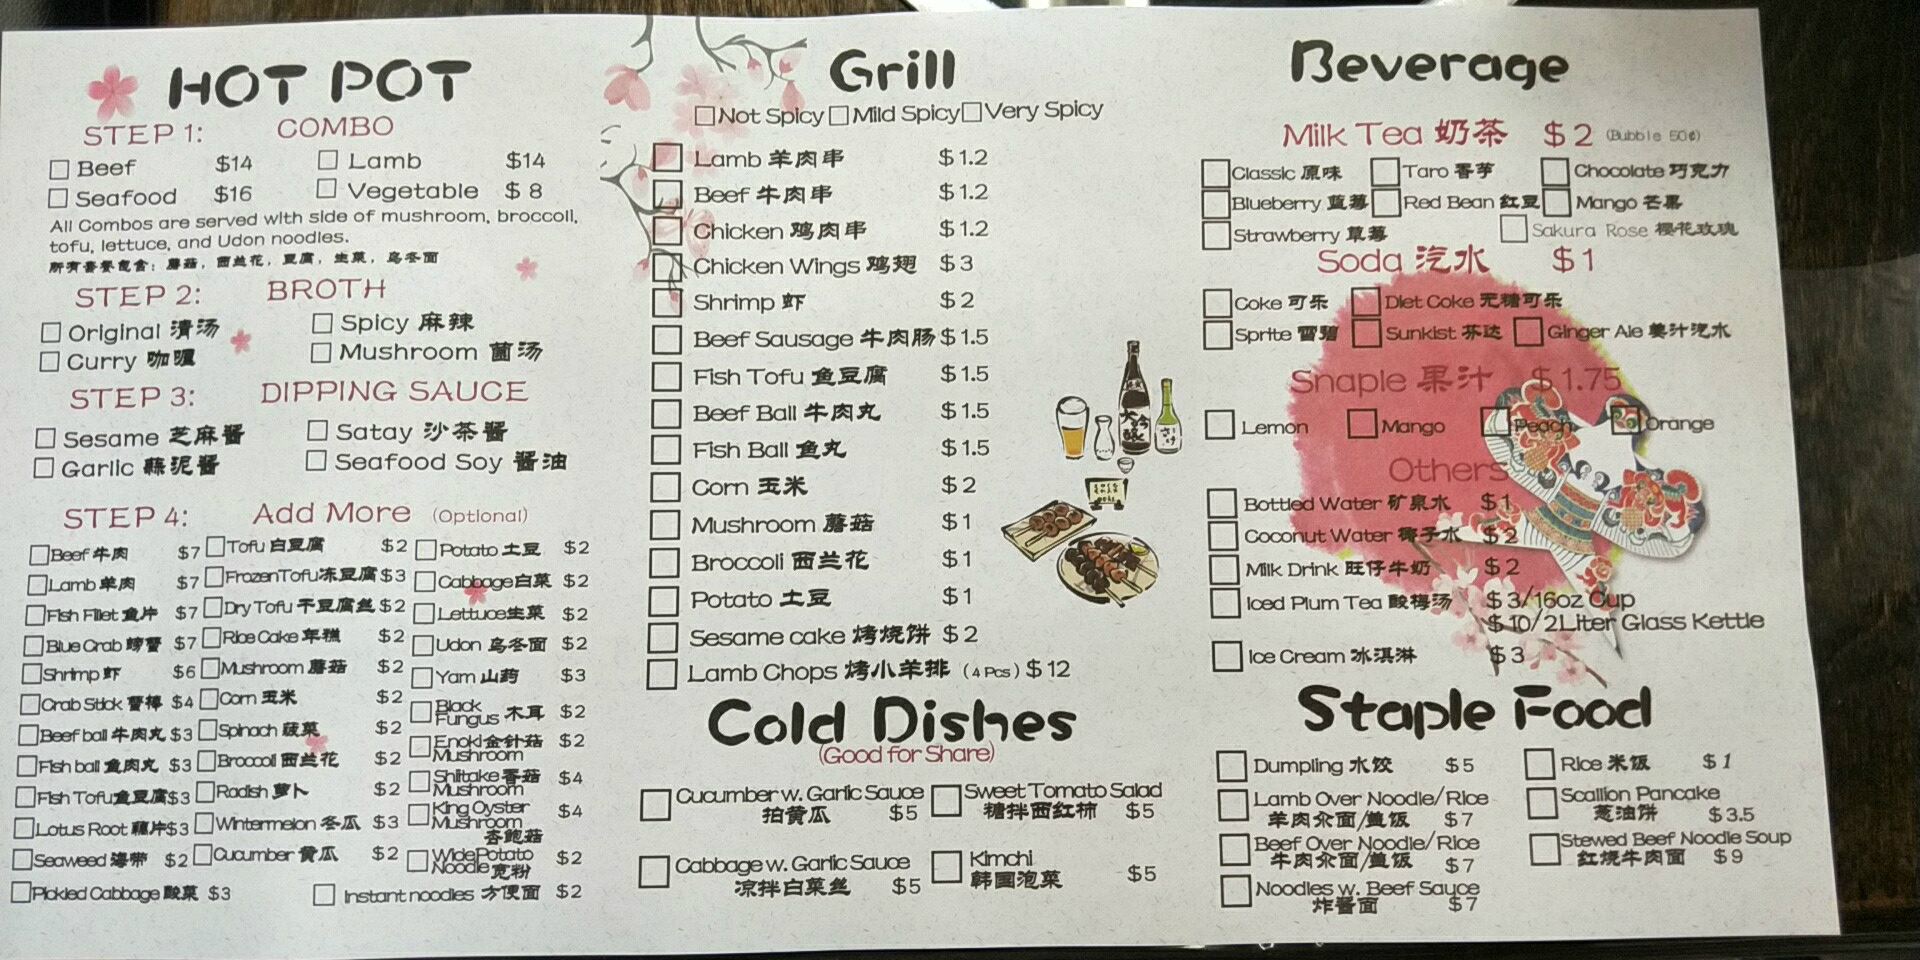 HOT POT
STEP 1: COMBO
Beef $14 Lamb $14
Seafood $16 Vegetable $8
All Combos are served with side of mushroom, broccoli,
tofu, lettuce, and Udon noodles.
所有套餐包含：蘑菇，西兰花，豆腐，生菜，乌冬面
STEP 2: BROTH
Original 清汤 Spicy 麻辣
Curry 咖喱 Mushroom 菌汤
STEP 3: DIPPING SAUCE
Sesame 芝麻酱 Satay 沙茶酱
Garlic 蒜泥酱 Seafood Soy 酱油
STEP 4: Add More (Optional)
Beef 牛肉 $7 Tofu 白豆腐 $2 Potato 土豆 $2
Lamb 羊肉 $7 Frozen Tofu 冻豆腐 $3 Cabbage 白菜 $2
Fish Fillet 鱼片 $7 Dry Tofu 干豆腐丝 $2 Lettuce 生菜 $2
Blue Crab 螃蟹 $7 Rice Cake 年糕 $2 Udon 乌冬面 $2
Shrimp 虾 $6 Mushroom 蘑菇 $2 Yam 山药 $3
Crab Stick 蟹棒 $4 Corn 玉米 $2 Black Fungus 木耳 $2
Beef ball 牛肉丸 $3 Spinach 菠菜 $2 Enoki Mushroom 金针菇 $2
Fish ball 鱼肉丸 $3 Broccoli 西兰花 $2 Shiitake Mushroom 香菇 $4
Fish Tofu 鱼豆腐 $3 Radish 萝卜 $2 King Oyster Mushroom 杏鲍菇 $4
Lotus Root 藕片 $3 Wintermelon 冬瓜 $3
Seaweed 海带 $2 Cucumber 黄瓜 $2 Wide Potato Noodle 宽粉 $2
Pickled Cabbage 酸菜 $3 Instant noodles 方便面 $2
Grill
Not Spicy Mild Spicy Very Spicy
Lamb 羊肉串 $1.2
Beef 牛肉串 $1.2
Chicken 鸡肉串 $1.2
Chicken Wings 鸡翅 $3
Shrimp 虾 $2
Beef Sausage 牛肉肠 $1.5
Fish Tofu 鱼豆腐 $1.5
Beef Ball 牛肉丸 $1.5
Fish Ball 鱼丸 $1.5
Corn 玉米 $2
Mushroom 蘑菇 $1
Broccoli 西兰花 $1
Potato 土豆 $1
Sesame cake 烤烧饼 $2
Lamb Chops 烤小羊排 (4 Pcs) $12
Cold Dishes
(Good for Share)
Cucumber w. Garlic Sauce Sweet Tomato Salad
拍黄瓜 $5 糖拌西红柿 $5
Cabbage w. Garlic Sauce Kimchi
凉拌白菜丝 $5 韩国泡菜 $5
Beverage
Milk Tea 奶茶 $2 (Bubble 50¢)
Classic 原味 Taro 香芋 Chocolate 巧克力
Blueberry 蓝莓 Red Bean 红豆 Mango 芒果
Strawberry 草莓 Sakura Rose 樱花玫瑰
Soda 汽水 $1
Coke 可乐 Diet Coke 无糖可乐
Sprite 雪碧 Sunkist 芬达 Ginger Ale 姜汁汽水
Snaple 果汁 $1.75
Lemon Mango Peach Orange
Others
Bottled Water 矿泉水 $1
Coconut Water 椰子水 $2
Milk Drink 旺仔牛奶 $2
Iced Plum Tea 酸梅汤 $3/16oz Cup
$10/2Liter Glass Kettle
Ice Cream 冰淇淋 $3
Staple Food
Dumpling 水饺 $5 Rice 米饭 $1
Lamb Over Noodle/Rice Scallion Pancake
羊肉汆面/盖饭 $7 葱油饼 $3.5
Beef Over Noodle/Rice Stewed Beef Noodle Soup
牛肉汆面/盖饭 $7 红烧牛肉面 $9
Noodles w. Beef Sauce
炸酱面 $7